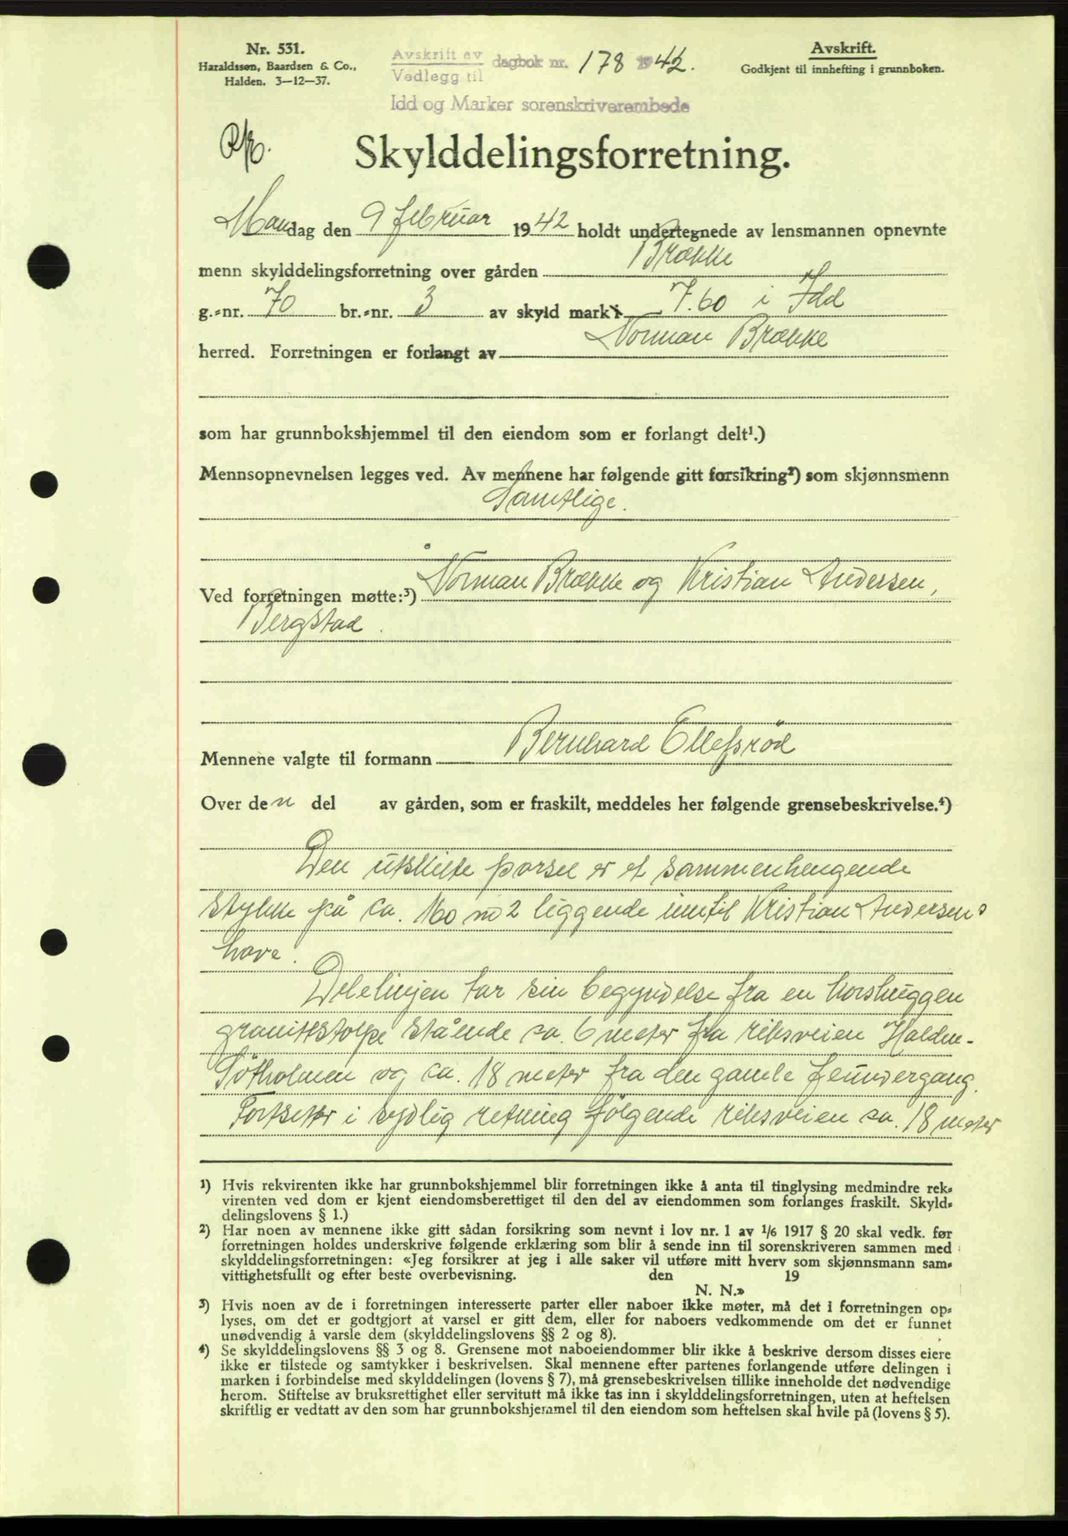 Nr. 531.
Haraldssøn, Baardsen & Co.,
Halden. 3—12—37.
Avskrift av
Vedlegg til
dagbok nr. 178 1942.
Idd og Marker sorenskriverembede
Avskrift.
Godkjent til innhefting i grunnboken.
Skylddelingsforretning.
Mandag den 9 februar 1942 holdt undertegnede av lensmannen opnevnte
menn skylddelingsforretning over gården Brække
g.-nr. 70 br.-nr. 3 av skyld mark 7.60 i Idd
herred. Forretningen er forlangt av Norman Brække
som har grunnbokshjemmel til den eiendom som er forlangt delt¹.)
Mennsopnevnelsen legges ved. Av mennene har følgende gitt forsikring²) som skjønnsmenn
Samtlige.
Ved forretningen møtte:³) Norman Brække og Kristian Andersen,
Bergstad.
Mennene valgte til formann Bernhard Ellefsrød
Over den del av gården, som er fraskilt, meddeles her følgende grensebeskrivelse.⁴)
Den utskilte parsel er et sammenhengende
stykke på ca. 160 m2 liggende inntil Kristian Andersens
have.
Delelinjen tar sin begyndelse fra en korshuggen
granittstolpe stående ca. 6 meter fra riksveien Halden-
Søtholmen og ca. 18 meter fra den gamle feundergang.
Fortsetter i sydlig retning følgende riksveien ca. 18 meter
¹) Hvis rekvirenten ikke har grunnbokshjemmel blir forretningen ikke å anta til tinglysing medmindre rek-
virenten ved dom er kjent eiendomsberettiget til den del av eiendommen som forlanges fraskilt. Skyld-
delingslovens § 1.)
²) Har noen av mennene ikke gitt sådan forsikring som nevnt i lov nr. 1 av 1/6 1917 § 20 skal vedk. før
forretningen holdes underskrive følgende erklæring som blir å sende inn til sorenskriveren sammen med
skylddelingsforretningen: «Jeg forsikrer at jeg i alle saker vil utføre mitt hverv som skjønnsmann sam-
vittighetsfullt og efter beste overbevisning. den 19
N. N.»
³) Hvis noen av de i forretningen interesserte parter eller naboer ikke møter, må det i forretningen op-
lyses, om det er godtgjort at varsel er gitt dem, eller for naboers vedkommende om det er funnet
unødvendig å varsle dem (skylddelingslovens §§ 2 og 8).
⁴) Se skylddelingslovens §§ 3 og 8. Grensene mot naboeiendommer blir ikke å beskrive dersom disses eiere
ikke er tilstede og samtykker i beskrivelsen. Skal mennene efter partenes forlangende utføre delingen i
marken i forbindelse med skylddelingen (lovens § 7), må grensebeskrivelsen tillike inneholde det nødvendige
herom. Stiftelse av bruksrettighet eller servitutt må ikke tas inn i skylddelingsforretningen, uten at heftelsen
skriftlig er vedtatt av den som har grunnbokshjemmel til den eiendom som heftelsen skal hvile på (lovens § 5).